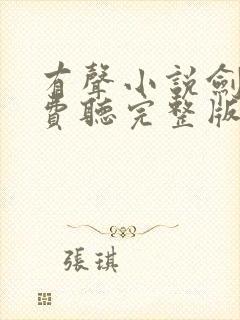 有聲小説劍
費聽完整版
張琪